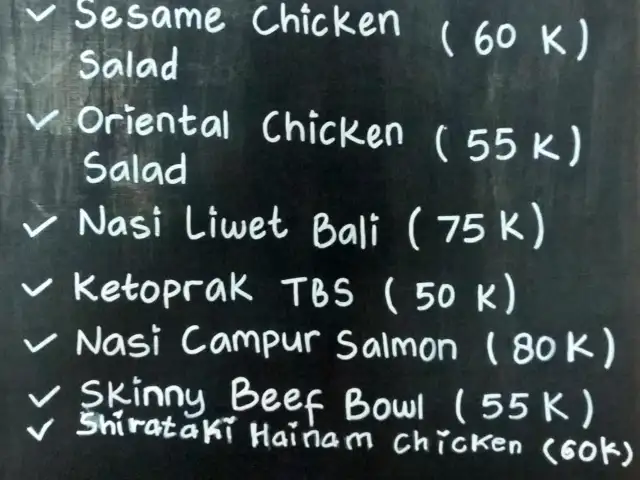 ✓ Sesame Chicken (60 K)
Salad
✓ Oriental Chicken (55 K)
Salad
✓ Nasi Liwet Bali (75 K)
✓ Ketoprak TBS (50 K)
✓ Nasi Campur Salmon (80 K)
✓ Skinny Beef Bowl (55 K)
✓ Shirataki Hainam Chicken (60K)